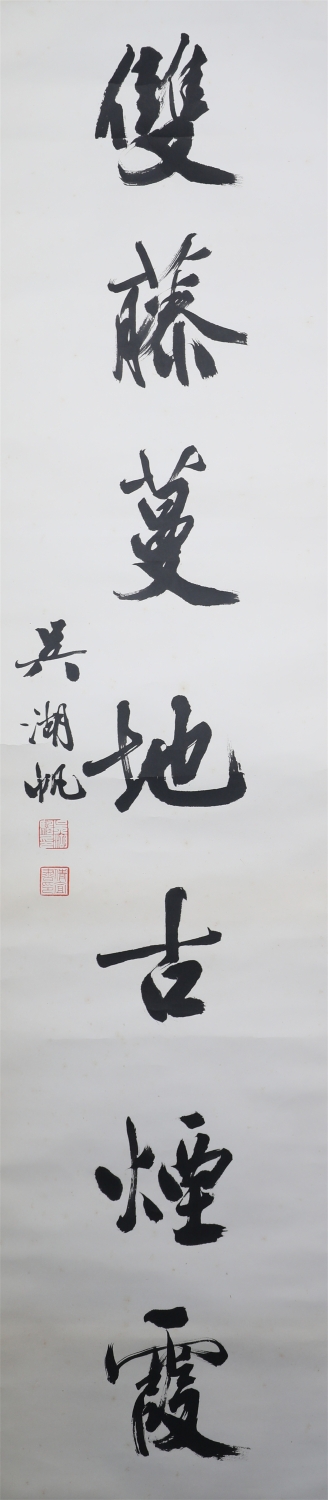 雙藤蔓地古煙霞
吳湖帆